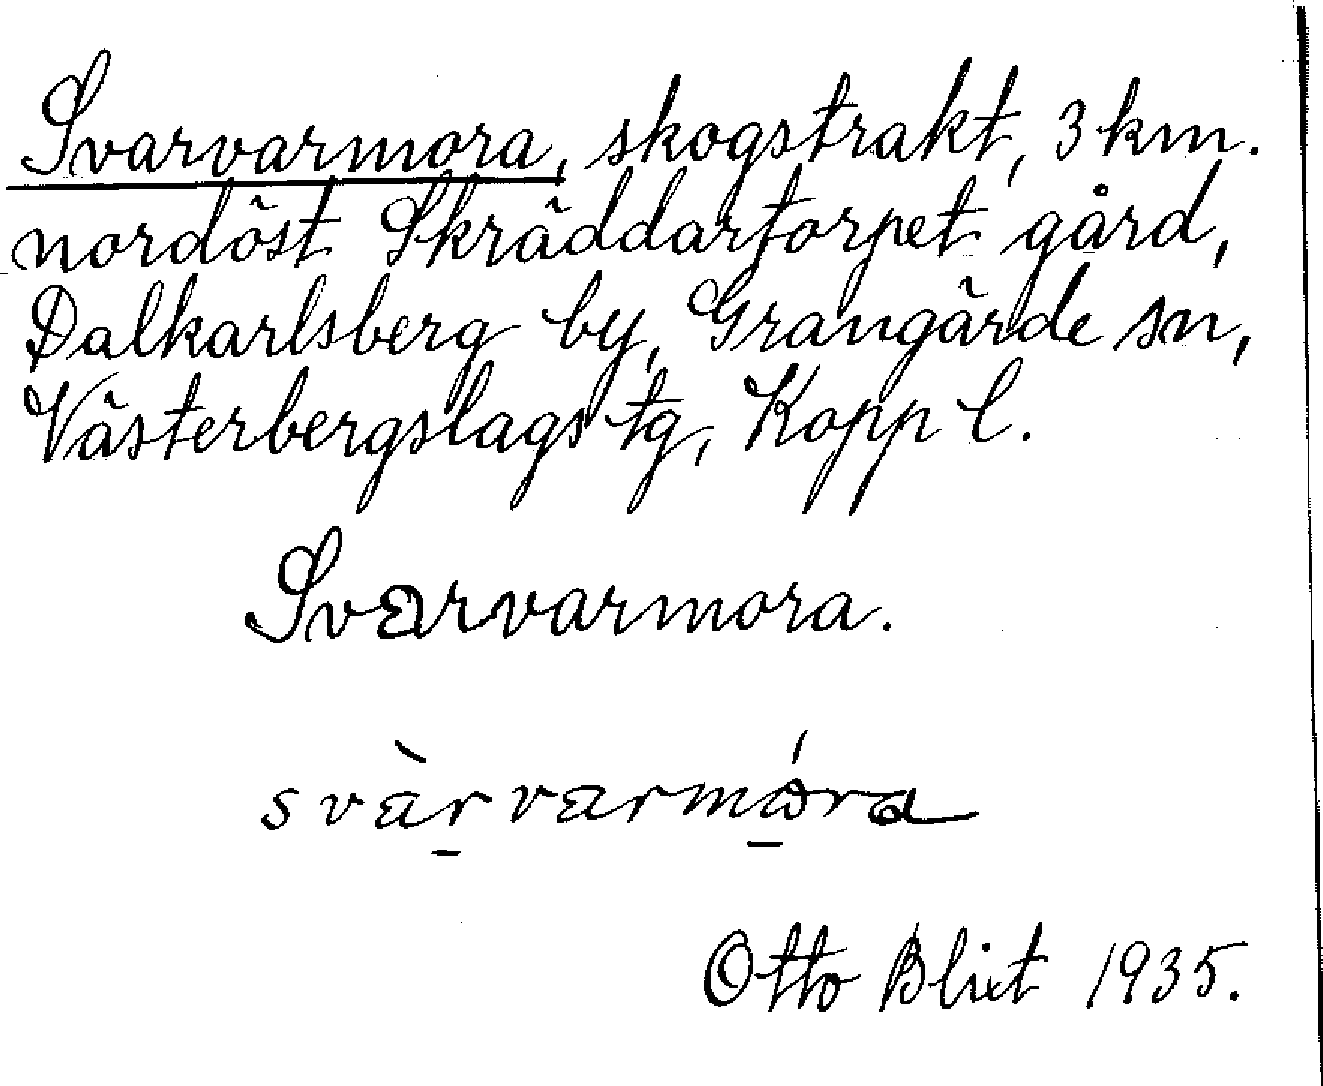 Svarvarmora, skogstrakt, 3 km.
nordöst Skräddartorpet gård,
Dalkarlsberg by, Grangärde sn,
Västerbergslags tg, Kopp l.
Svarvarmora.
svàrvarmóra
Otto Blixt 1935.